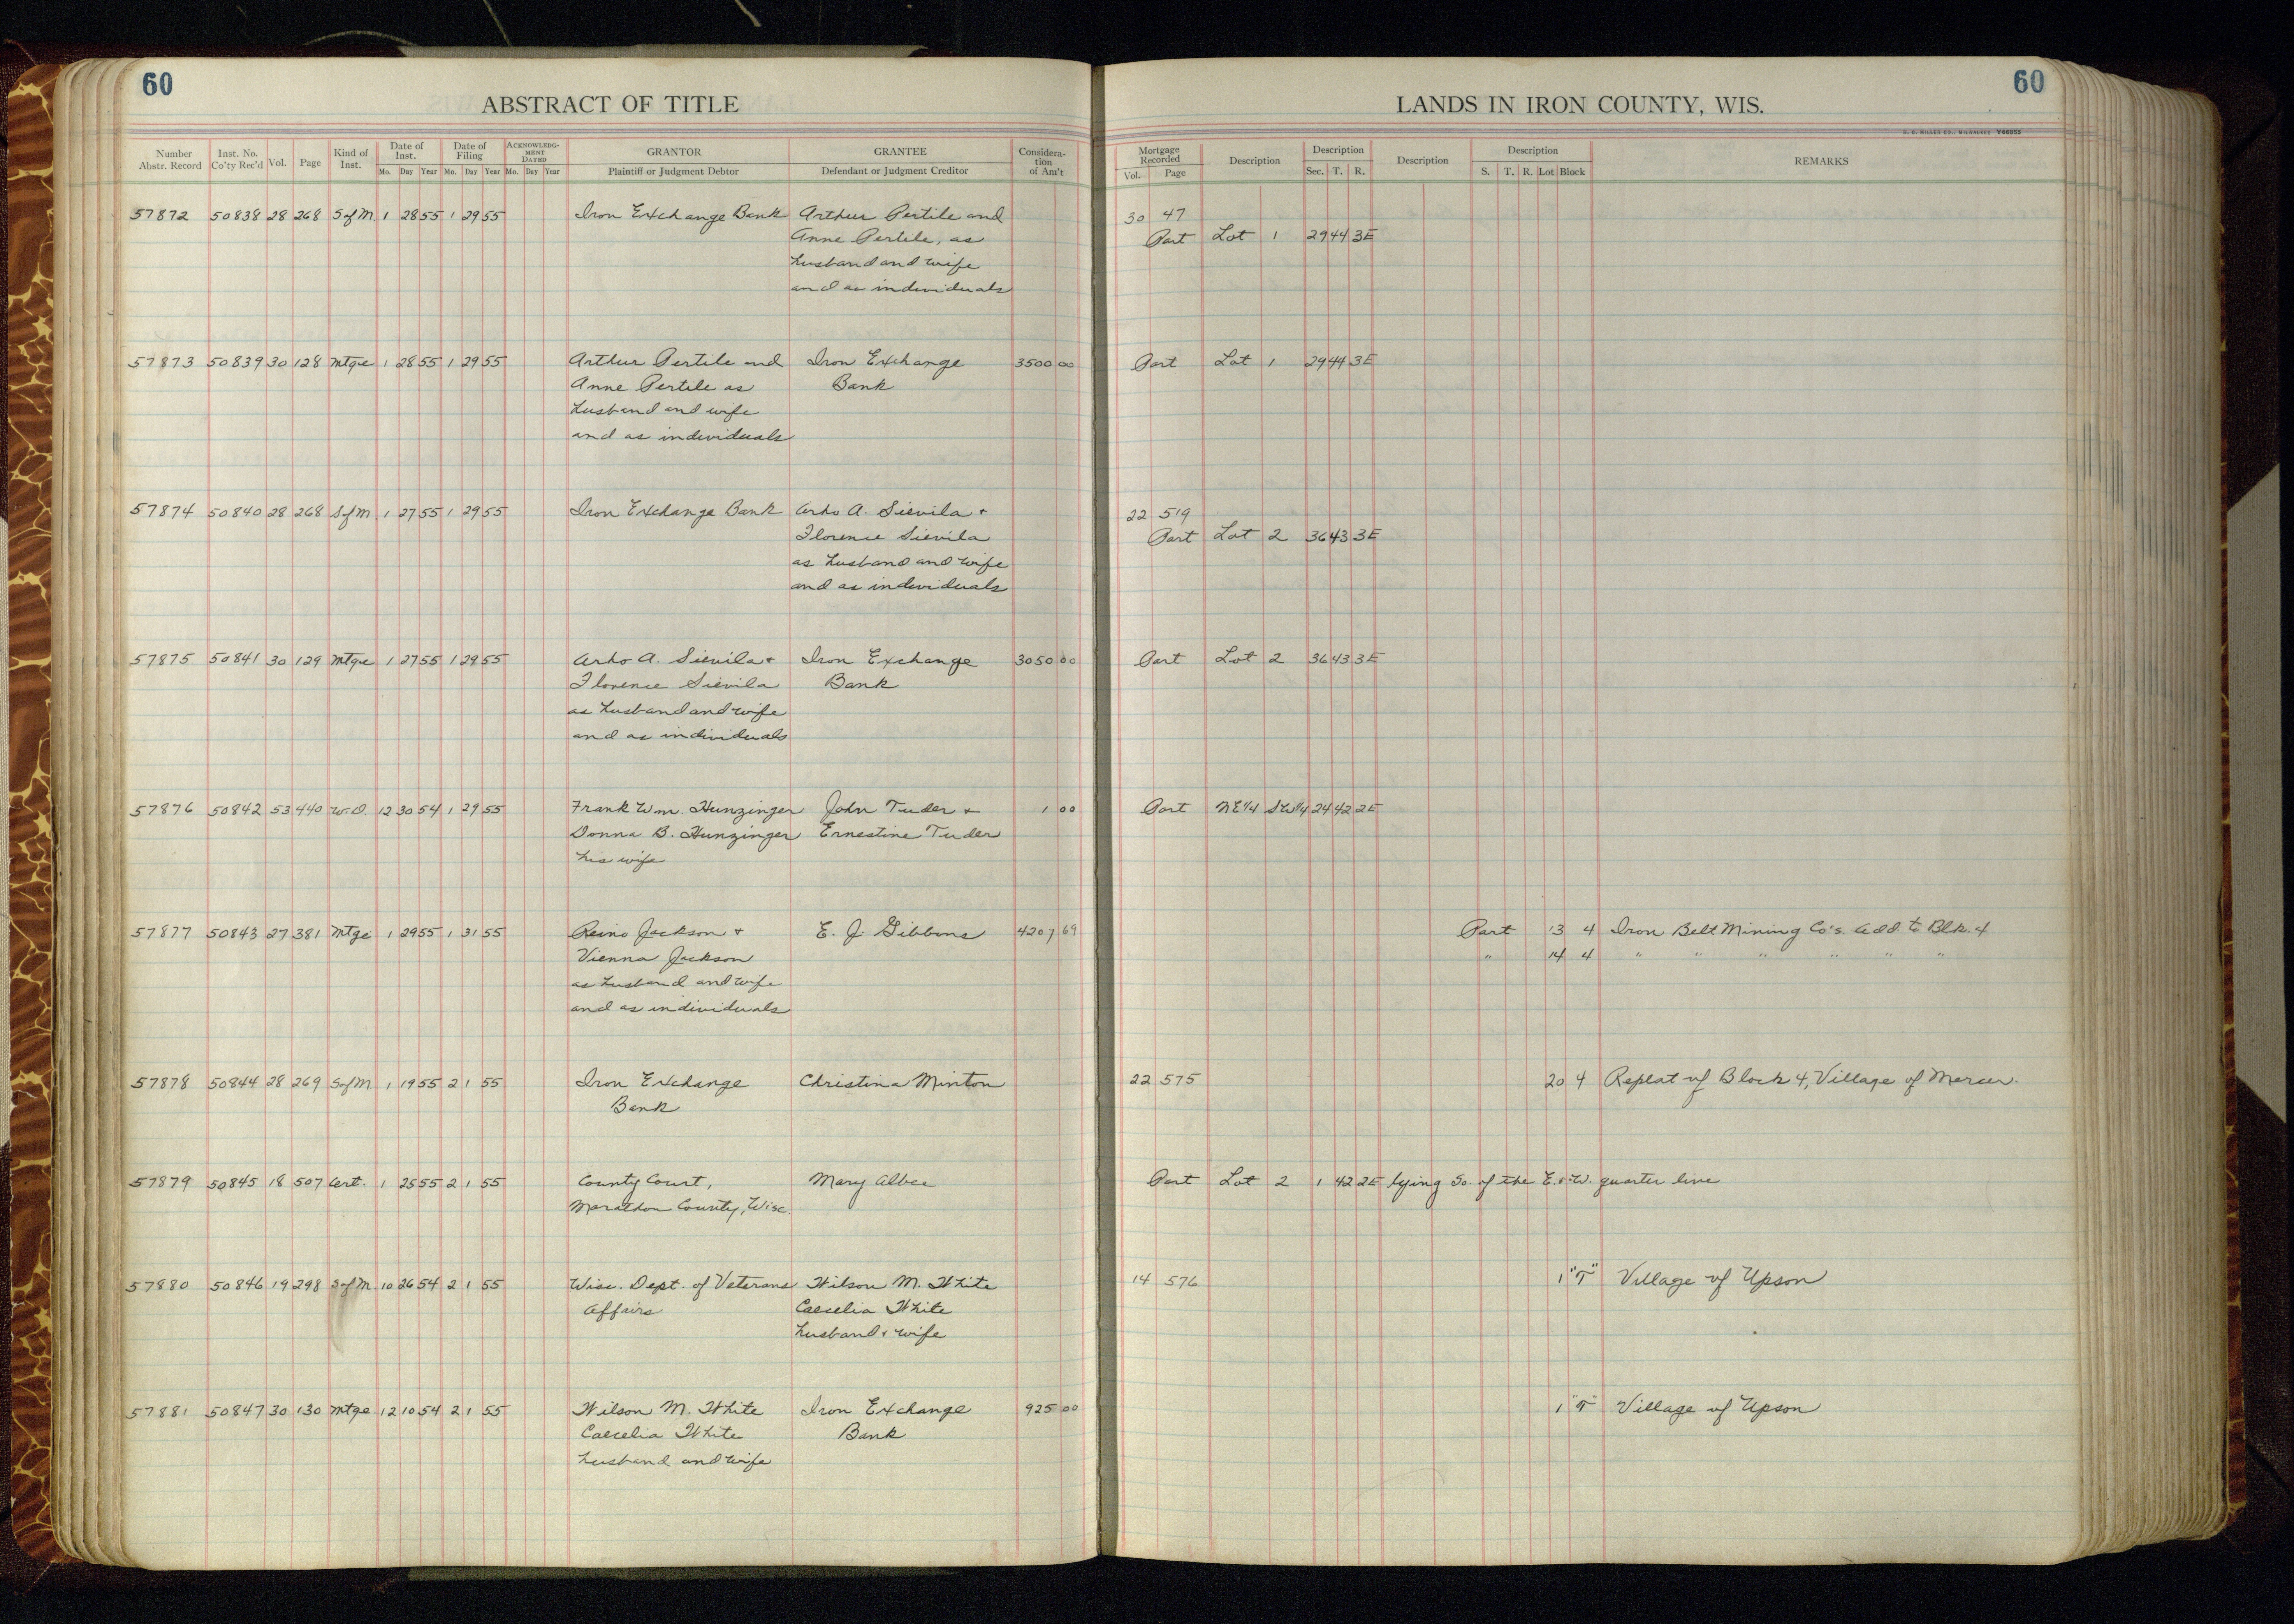 60
60
ABSTRACT OF TITLE
LANDS IN IRON COUNTY, WIS.
H. C. MILLER CO., MILWAUKEE Y66055
Number Abstr. Record Inst. No. Co'ty Rec'd Vol. Page Kind of Inst. Date of Inst. Mo. Day Year Date of Filing Mo. Day Year ACKNOWLEDGMENT DATED Mo. Day Year GRANTOR Plaintiff or Judgment Debtor GRANTEE Defendant or Judgment Creditor Consideration of Am't
Mortgage Recorded Vol. Page Description Description Sec. T. R. Description Description S. T. R. Lot Block REMARKS
57872 50838 28 268 S of M. 1 28 55 1 29 55 Iron Exchange Bank Arthur Pertile and 30 47
Anne Pertile, as Part Lot 1 29 44 3E
husband and wife
and as individuals
57873 50839 30 128 Mtge 1 28 55 1 29 55 Arthur Pertile and Iron Exchange 3500 00 Part Lot 1 29 44 3E
Anne Pertile as Bank
husband and wife
and as individuals
57874 50840 28 268 S of M. 1 27 55 1 29 55 Iron Exchange Bank Arho A. Sievila + 22 519
Florence Sievila Part Lot 2 36 43 3E
as husband and wife
and as individuals
57875 50841 30 129 Mtge 1 27 55 1 29 55 Arho A. Sievila + Iron Exchange 3050 00 Part Lot 2 36 43 3E
Florence Sievila Bank
as husband and wife
and as individuals
57876 50842 53 440 W.D. 12 30 54 1 29 55 Frank Wm. Hunzinger John Tuder + 1 00 Part NE1/4 SW1/4 24 42 2E
Donna B. Hunzinger Ernestine Tuder
his wife
57877 50843 27 381 Mtge 1 29 55 1 31 55 Reino Jackson + E. J. Gibbons 4207 69 Part 13 4 Iron Belt Mining Co's. Add. to Blk. 4
Vienna Jackson " 14 4 " " " " " "
as husband and wife
and as individuals
57878 50844 28 269 S of M 1 19 55 2 1 55 Iron Exchange Christina Minton 22 575 20 4 Replat of Block 4, Village of Mercer.
Bank
57879 50845 18 507 Cert. 1 25 55 2 1 55 County Court, Mary Albee Part Lot 2 1 42 2E lying So. of the E. & W. quarter line
Marathon County, Wisc.
57880 50846 19 298 S of M. 10 26 54 2 1 55 Wisc. Dept. of Veterans Wilson M. White 14 576 1 "T" Village of Upson
Affairs Caecelia White
husband & wife
57881 50847 30 130 Mtge 12 10 54 2 1 55 Wilson M. White Iron Exchange 925 00 1 "T" Village of Upson
Caecelia White Bank
husband and wife